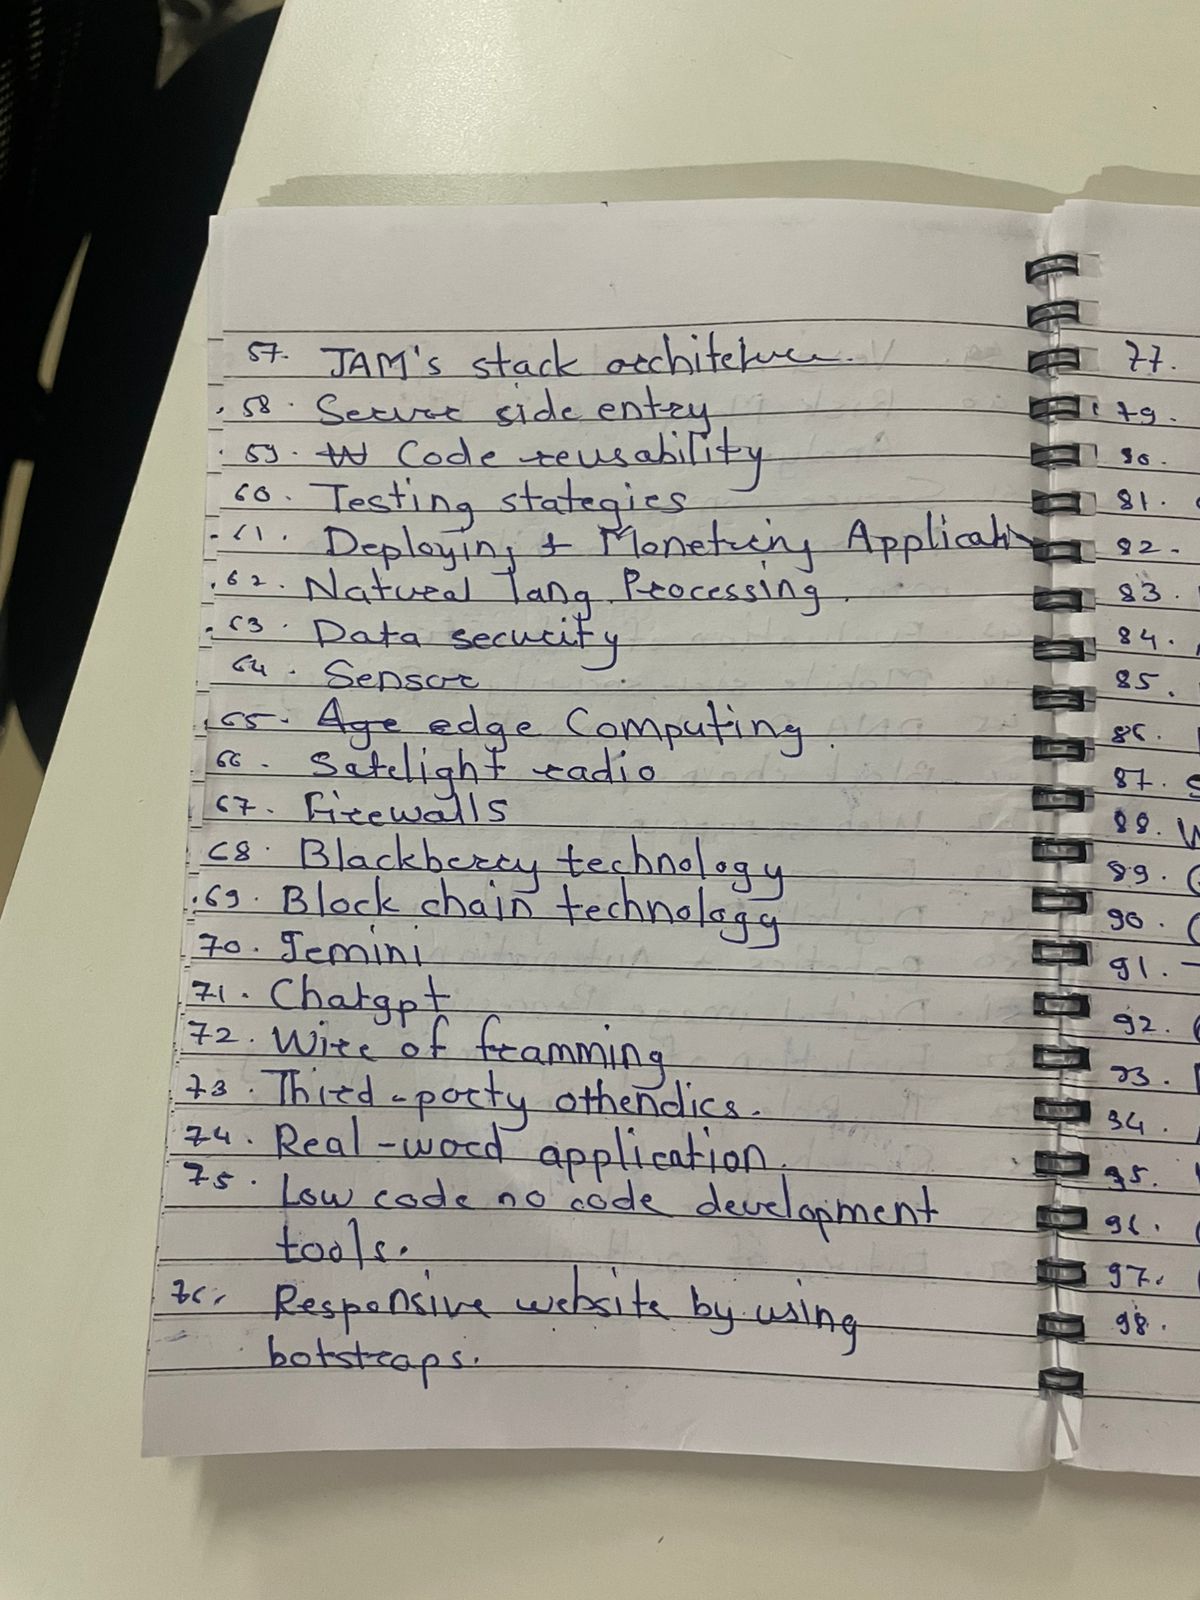 57. JAM's stack architehure.
58. Secure side entry
59. Code reusability
60. Testing stategies
61. Deploying + Monetizing Applicati
62. Natural lang Processing.
63. Data security
64. Sensor
65. Age edge Computing.
66. Satelight radio
67. Firewalls
68. Blackberry technology
69. Block chain technology
70. Jemini
71. Chatgpt
72. Wire of framming
73. Third-party othendics.
74. Real-word application.
75. Low code no code development
tools.
76. Responsive website by using
botstraps.
77.
79.
80.
81.
82.
83.
84.
85.
86.
87. S
88. W
89.
90.
91.
92.
93.
94.
95.
96.
97.
98.